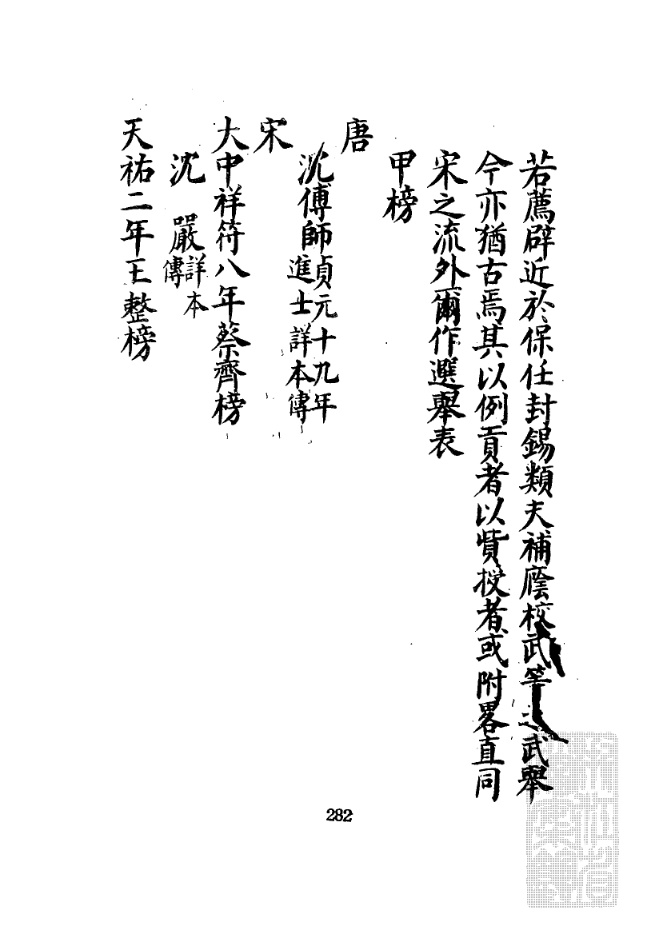 若薦辟近於保任封錫類夫補廕校武等之武舉
今亦猶古焉其以例貢者以貲授者或附畧直同
宋之流外爾作選舉表
甲榜
唐
沈傅師貞元十九年進士詳本傳
宋
大中祥符八年蔡齊榜
沈嚴詳本傳
天祐二年王整榜
282